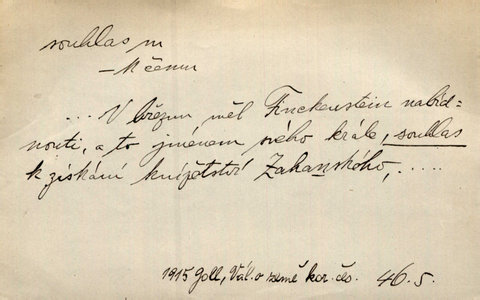 souhlas m
– k čemu
... V březnu měl Finckenstein nabíd-
nouti, a to jménem svého krále, souhlas
k získání knížetství Zahanského, .....
1915 Goll, Vál. o země kor. čes. 46.5.